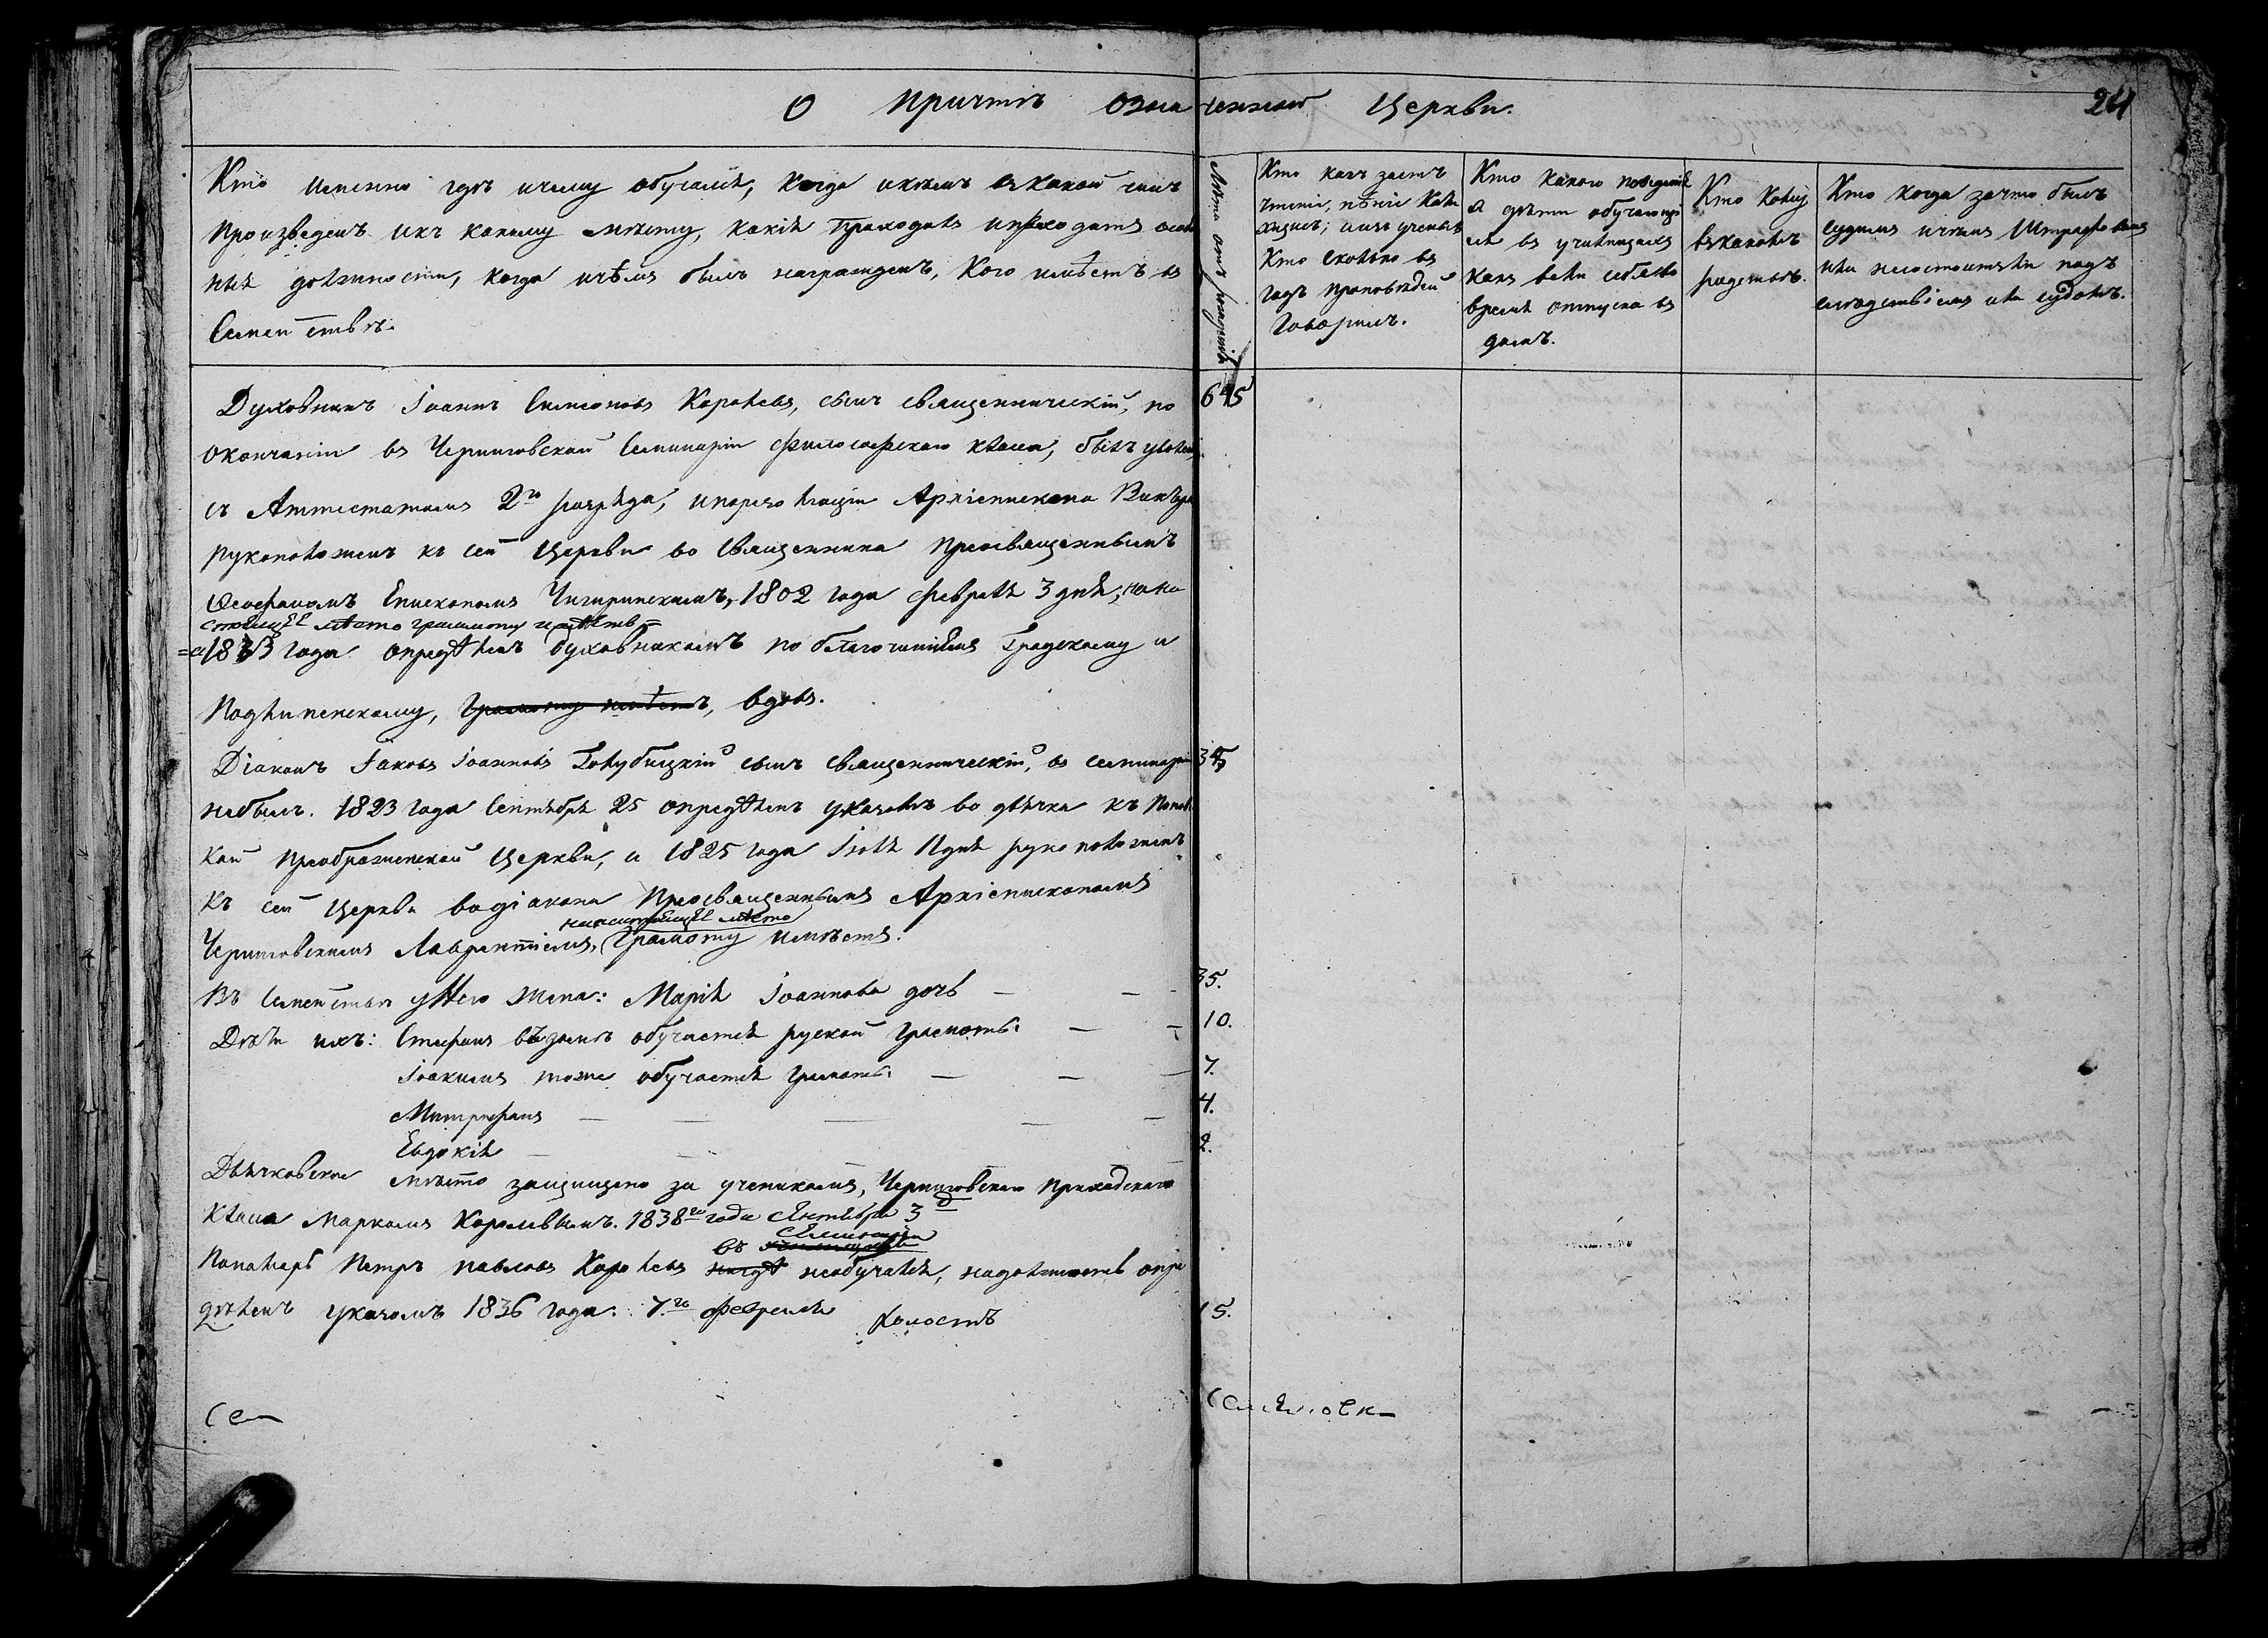 О причтѣ означенной Церкви.
24
Кто именно гдѣ и чему обучался, когда и кѣмъ въ какой чинъ
произведенъ и къ какому мѣсту, какія проходилъ и проходитъ особ
ныя должности, когда и чѣмъ былъ награжденъ, Кого имѣетъ въ
Семействѣ.
Лѣта отъ рожденія
Кто какъ знаетъ
чтеніе, пѣніе Кати
хизисъ; изъ ученыхъ
Кто сколько въ
годъ проповѣдей
Говорилъ.
Кто какого поведенія
а дѣти обучающі
ися въ училищахъ
какъ вели себя во
время отпуска въ
домъ.
Кто Кому
въ какомъ
родствѣ.
Кто когда за что былъ
судимъ и чѣмъ Штрафованъ
или не состоитъ ли подъ
слѣдствіемъ или судомъ.
Духовникъ Іоаннъ Симеоновъ Королевъ, сынъ священническій, по 645
окончаніи въ Черниговской Семинаріи философскаго класса, былъ уволенъ
съ Аттестатомъ 2го разряда, и по резолюціи Архіепископа Виктора
рукоположенъ къ сей Церкви во Священника Преосвященнымъ
Ѳеофаномъ Епископомъ Чигиринскимъ, 1802 года февраля 3 дня, на на
стоящее мѣсто грамоту имѣетъ
1833 года опредѣленъ духовникомъ по благочиніямъ Градскому и
Подлипенскому, Грамоту имѣетъ, вдовъ.
Діаконъ Іаковъ Іоанновъ Голубицкій сынъ священническій, въ семинаріи 35
не былъ. 1823 года Сентября 25 опредѣленъ указомъ во дьячка къ Попов
кой Преображенской Церкви, а 1825 года Іюля 11 дня рукоположенъ
къ сей Церкви во діакона Преосвященнымъ Архіепископомъ
на настоящее мѣсто
Черниговскимъ Лаврентіемъ, Грамоту имѣетъ.
Въ Семействѣ у Него жена: Марія Іоаннова дочь — — 35.
Дѣти ихъ: Стефанъ въ домѣ обучается руской грамоты. — — 10.
Іоакимъ тоже обучается грамоты. — — — 7.
Митрофанъ — — — — — 4.
Евдокія — — 2.
Дьячковское мѣсто защищено за ученикомъ, Черниговскаго приходскаго
Класса Маркомъ Королевымъ. 1838го года Октября 3
Семинаріи
въ училищѣ
Пономарь Петръ Павловъ Королевъ нигдѣ не обучался, на должность опре
дѣленъ указомъ 1836 года. 7го февраля холостъ 15.